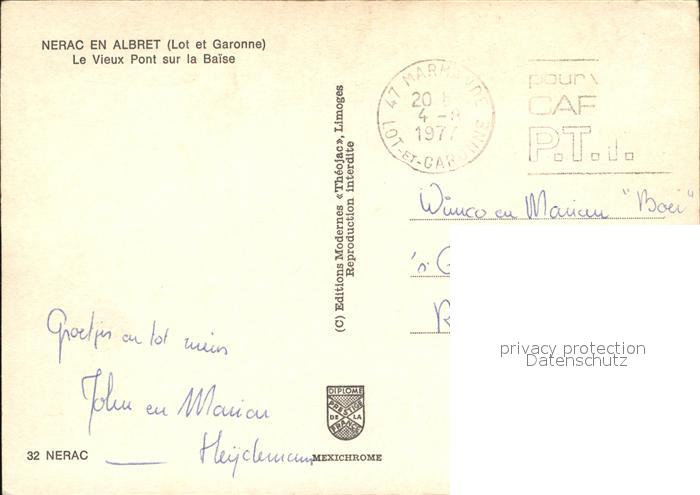 NERAC EN ALBRET (Lot et Garonne)
Le Vieux Pont sur la Baïse
47 MARMANDE
20 H
4 -8
1977
LOT-ET-GARONNE
pour
CAF
P.T.T.
(C) Editions Modernes «Théojac», Limoges
Reproduction interdite
en Marian "Boei"
's-G
R
privacy protection
Datenschutz
Groetjes en tot
John en Marian
Heijdemann
DIPLOME
PRESTIGE
DE LA
FRANCE
MEXICHROME
32 NERAC